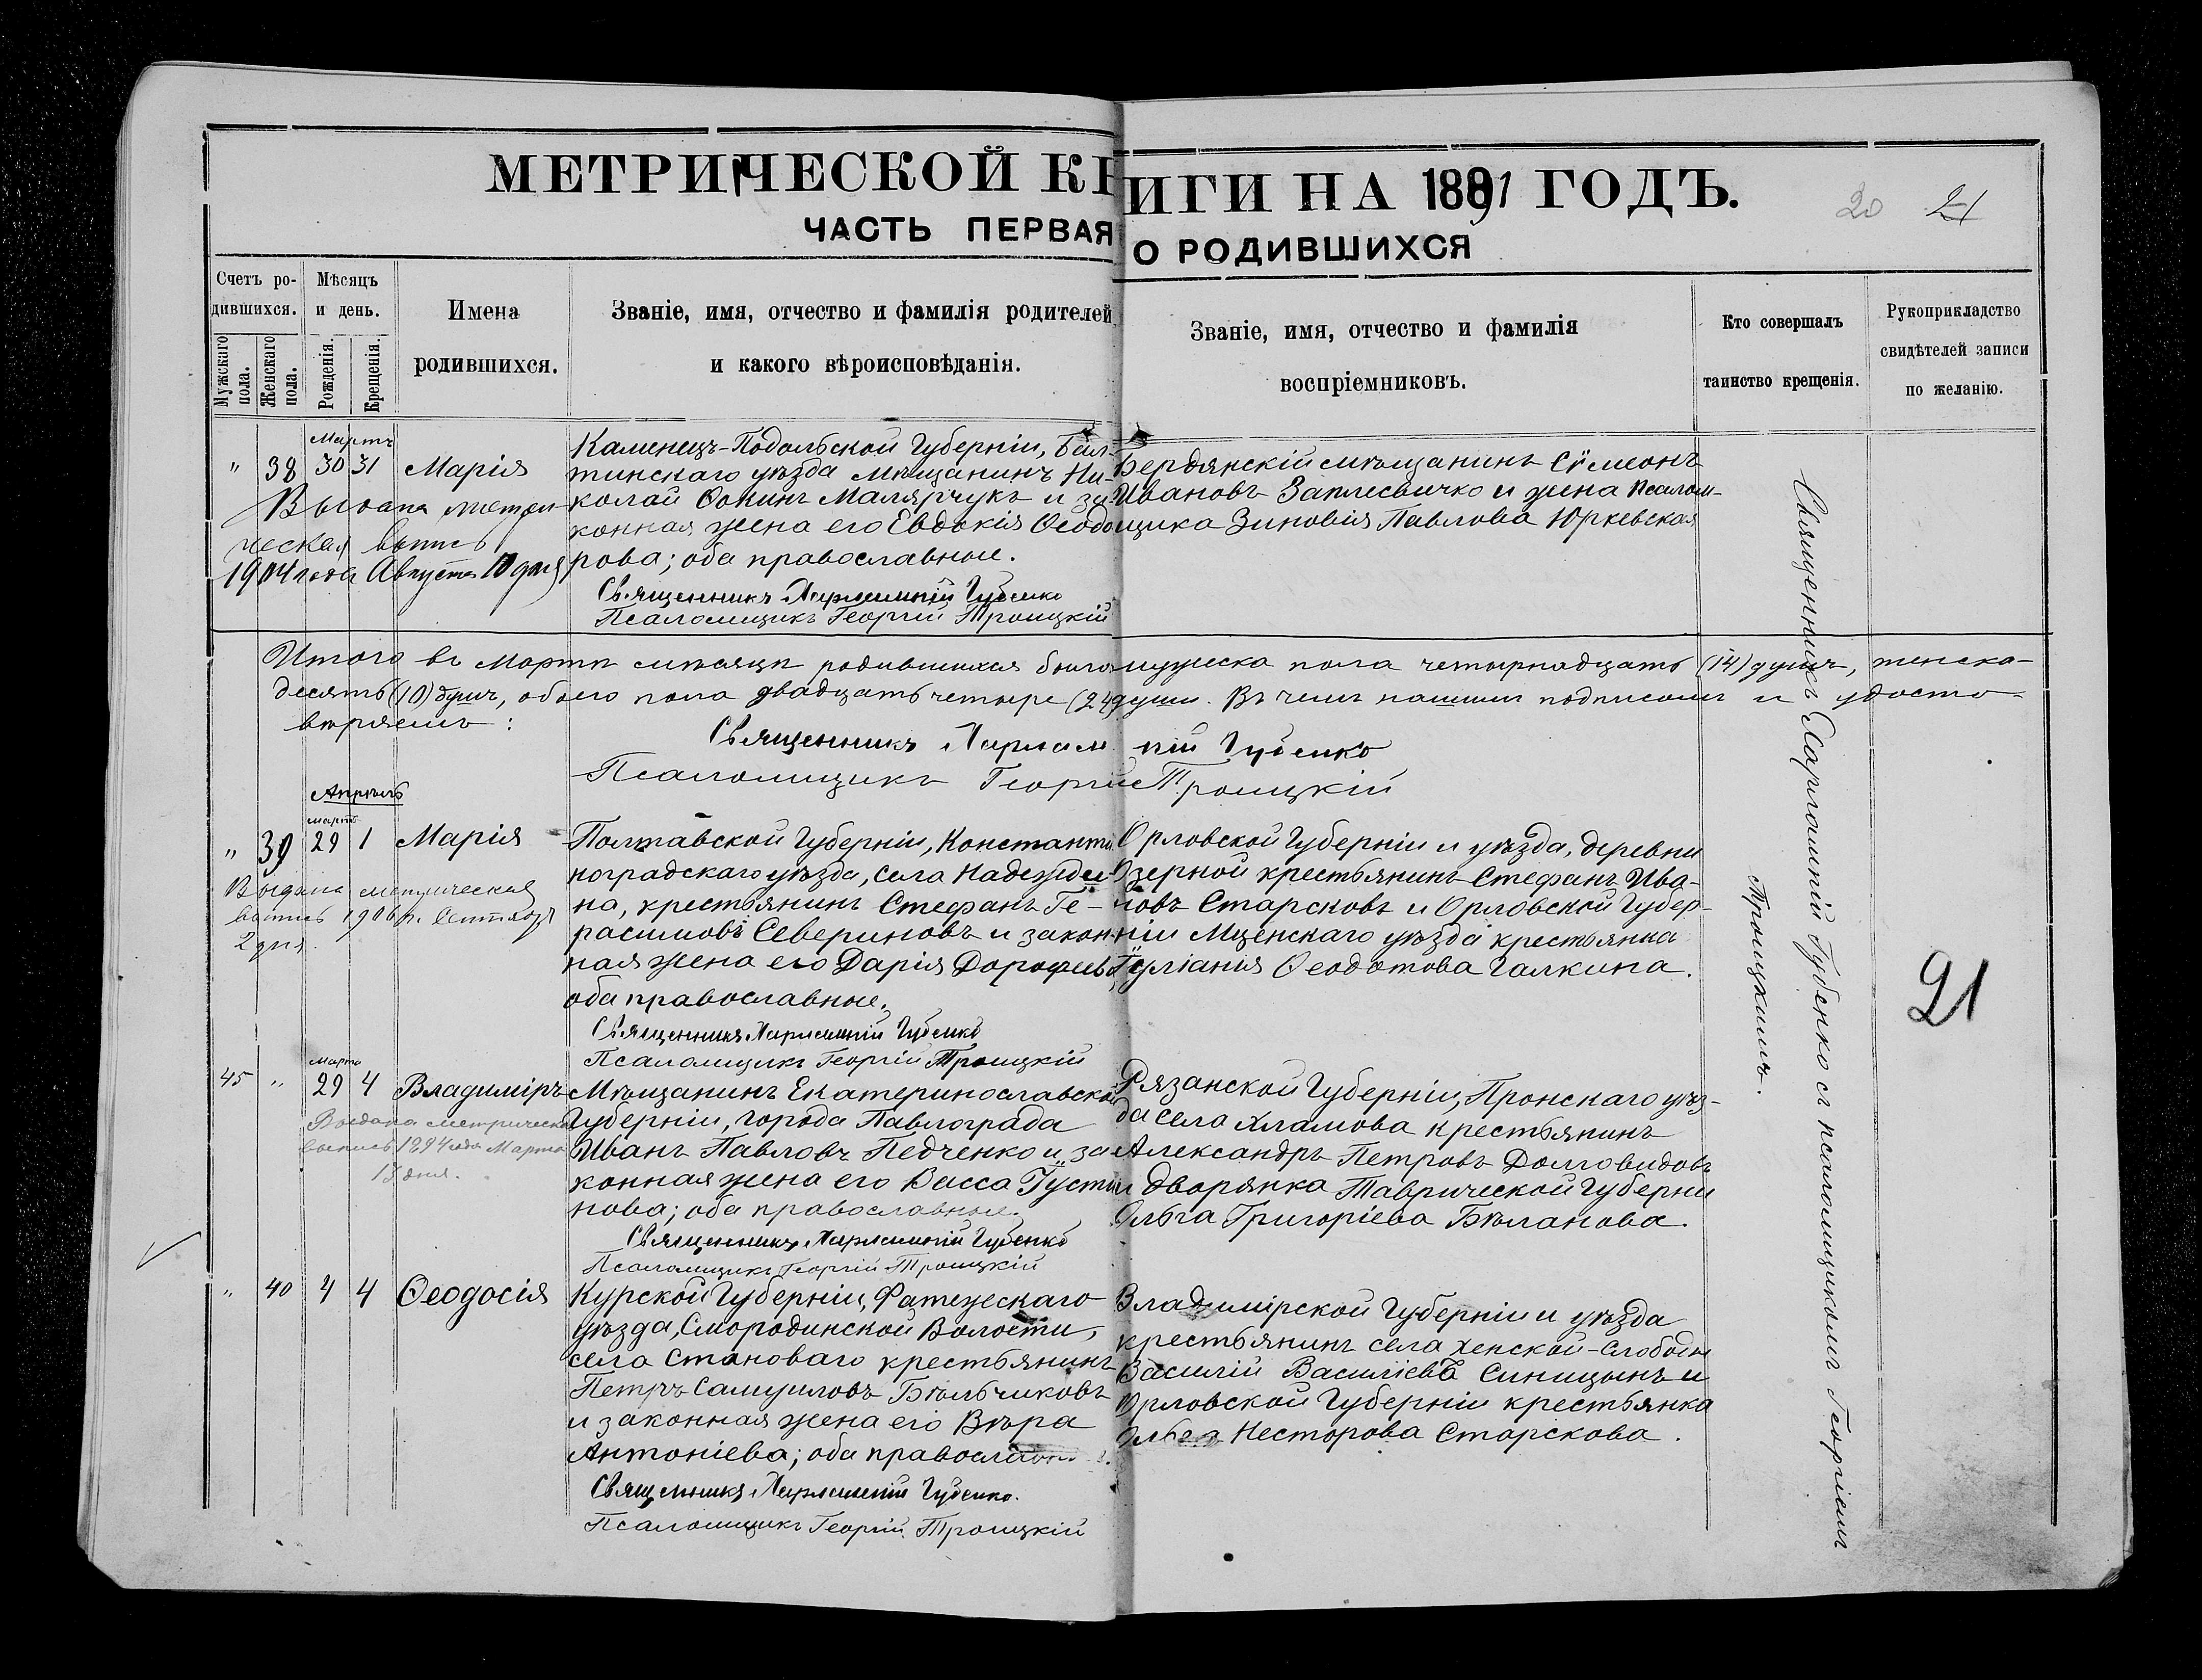 МЕТРИЧЕСКОЙ КНИГИ НА 1891 ГОДЪ.
20 21
ЧАСТЬ ПЕРВАЯ О РОДИВШИХСЯ
Счетъ родившихся.
Мужскаго пола.
Женскаго пола.
Мѣсяцъ и день.
Рожденія.
Крещенія.
Имена
родившихся.
Званіе, имя, отчество и фамилія родителей
и какого вѣроисповѣданія.
Званіе, имя, отчество и фамилія
воспріемниковъ.
Кто совершалъ
таинство крещенія.
Рукоприкладство
свидѣтелей записи
по желанію.
Мартъ
" 38 30 31 Марія
Выдана метри-
ческая выпись
1914 года Августа 10 дня
Каменецъ-Подольской Губерніи, Бал-
тинскаго уѣзда мѣщанинъ Ни-
колай Ѳокинъ Малярчукъ и за-
конная жена его Евдокія Ѳеодо-
рова; оба православные.
Священникъ Харлампій Губенко
Псаломщикъ Георгій Троицкій
Бердянскій мѣщанинъ Сѵмеонъ
Ивановъ Заплесвичко и жена псалом-
щика Зиновія Павлова Юркевская
Итого въ Мартѣ мѣсяцѣ родившихся было мужеска пола четырнадцать (14) душъ, женска-
десять (10) душъ, обоего пола двадцать четыре (24) души. Въ чемъ нашимъ подписомъ и удосто-
вѣряемъ:
Священникъ Харлампій Губенко
Псаломщикъ Георгій Троицкій
Апрѣль
мартъ
" 39 29 1 Марія
Выдана метрическая
выпись 1906 г. Сентября
2 дня.
Полтавской Губерніи, Константи-
ноградскаго уѣзда, села Надежди-
на, крестьянинъ Стефанъ Ге-
расимовъ Севериновъ и закон-
ная жена его Дарія Дорофѣева
оба православные.
Священникъ Харлампій Губенко
Псаломщикъ Георгій Троицкій
Орловской Губерніи и уѣзда, деревни
Озерной крестьянинъ Стефанъ Ива-
новъ Старсковъ и Орловской Губер-
ніи Мценскаго уѣзда крестьянка
Іуліанія Ѳеодотова Галкина.
марта
45 " 29 4 Владиміръ
Выдана метрическая
выпись 1894 года Марта
18 дня.
Мѣщанинъ Екатеринославской
Губерніи, города Павлограда
Иванъ Павловъ Педченко и за-
конная жена его Васса Густи-
нова; оба православные.
Священникъ Харлампій Губенко
Псаломщикъ Георгій Троицкій
Рязанской Губерніи, Пронскаго уѣз-
да села Хламова крестьянинъ
Александръ Петровъ Долговидовъ
и дворянка Таврической Губерни
Ольга Григоріева Бѣланова.
" 40 4 4 Ѳеодосія
Курской Губерніи, Фатежескаго
уѣзда, Смородинской Волости,
села Становаго крестьянинъ
Петръ Самуиловъ Бѣльчиковъ
и законная жена его Вѣра
Антоніева; оба православн
Священникъ Харлампій Губенко.
Псаломщикъ Георгій Троицкій
Владимірской Губерніи и уѣзда
крестьянинъ села Хенской-Слободы
Василій Василіевъ Синицынъ и
Орловской Губерніи крестьянка
Ольга Несторова Старскова.
Священникъ Харлампій Губенко съ псаломщикомъ Георгіемъ
Троицкимъ.
21